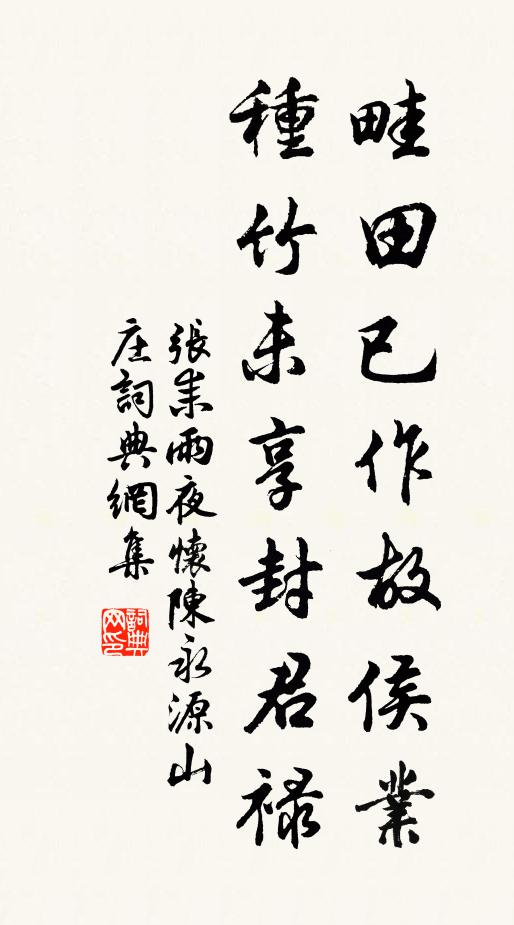 畦田已作故侯業
種竹未享封君禄
張耒雨夜懷陳永源山
庄詞典網集
詞典网印